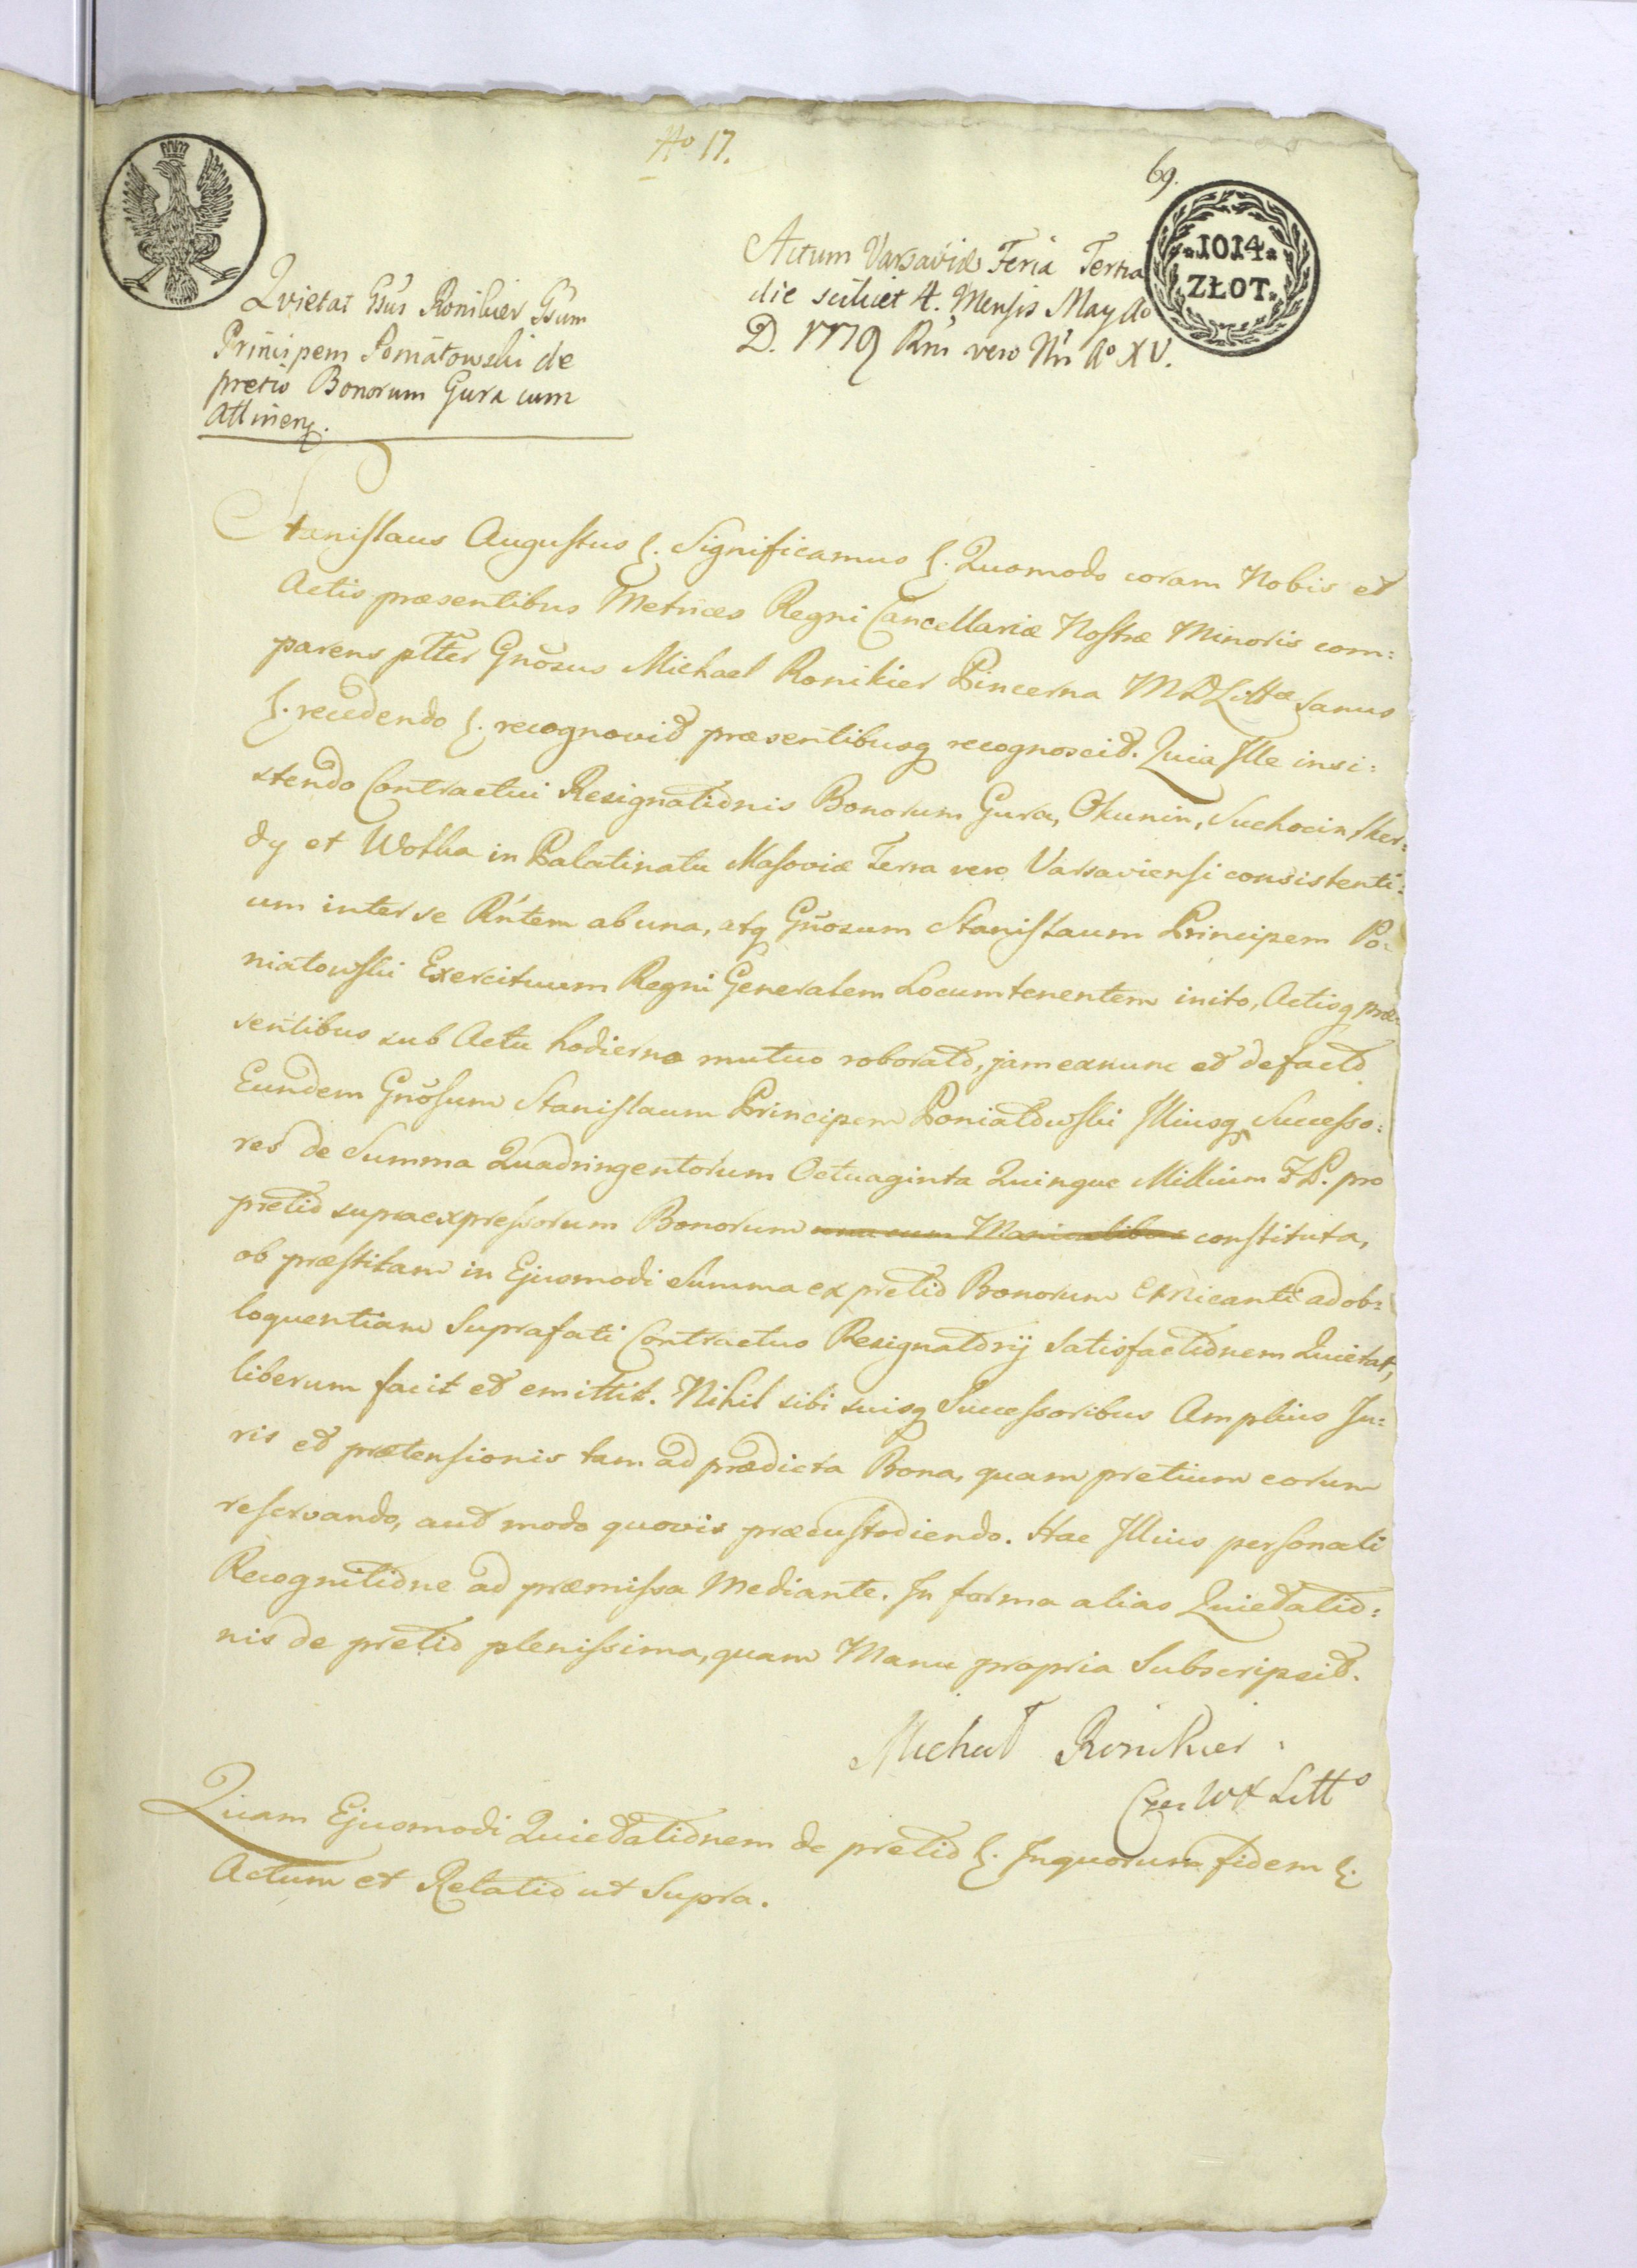 No 17.
69.
1014
ZŁOT.
Actum Varsaviæ Feria Tertia
die scilicet 4. Mensis May Ao
D. 1779 Rni vero Nri Ao XV.
Qvietat Gsus Ronikier Gsum
Principem Poniatowski de
pretio Bonorum Gura cum
Attinen.
Stanislaus Augustus &. Significamus &. Quomodo coram Nobis et
Actis præsentibus Metrices Regni Cancellariæ Nostræ Minoris com:
parens pltter Gnosus Michael Ronikier Pincerna MDLittæ sanus
&. recedendo &. recognovit præsentibusq recognoscit. Quia Ille insi:
stendo Contractui Resignationis Bonorum Gura, Okunin, Suchocin, Sker:
dy et Wolka in Palatinatu Masoviæ Terra vero Varsaviensi consistenti:
um inter se Rntem ab una, atq Gnosum Stanislaum Principem Po:
niatowski Exercituum Regni Generalem Locumtenentem inito, Actisq præ:
sentibus sub Actu hodierno mutuo roborato, jam exnunc et defacto
Eundem Gnosum Stanislaum Principem Poniatowski Illiusq Successo:
res de Summa Quadringentorum Octuaginta Quinque Millium FP. pro
pretio supraexpressorum Bonorum una cum constituta,
ob præstitam in Ejusmodi Summa ex pretio Bonorum adob:
loquentiam Suprafati Contractus Resignatorij Satisfactionem Quietat,
liberum facit et emittit. Nihil sibi suisq Successoribus Amplius Ju:
ris et prætensionis tam ad prædicta Bona, quam pretium eorum
reservando, aut modo quovis præcustodiendo. Hac Illius personali
Recognitione ad præmissa Mediante. In forma alias Quietatio:
nis de pretio plenissima, quam Manu propria Subscripsit.
Michał Ronikier
WX Litto
Quam Ejusmodi Quietationem de pretio &. Inquorum fidem &.
Actum et Relatio ut Supra.